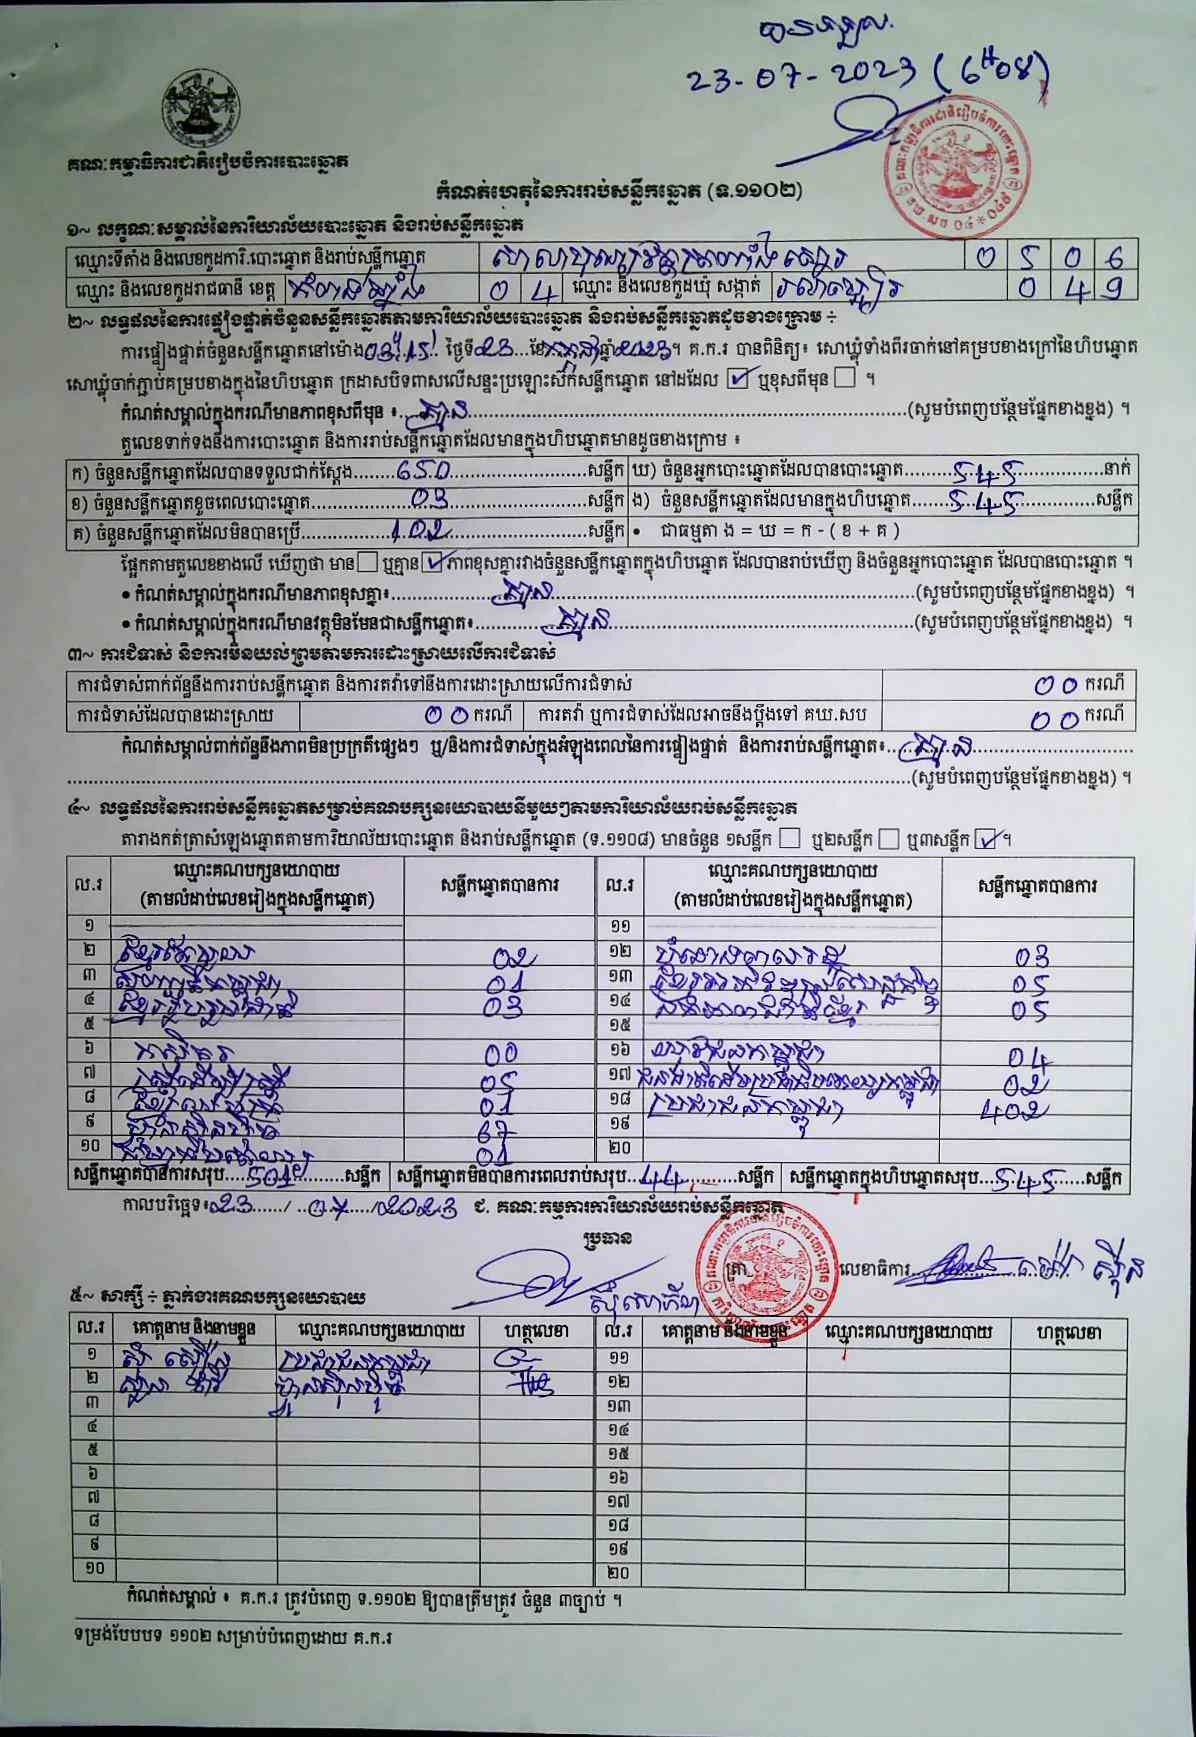 បានទទួល
23-07-2023 (6H04)
គណៈកម្មាធិការជាតិរៀបចំការបោះឆ្នោត
កំណត់ហេតុនៃការរាប់សន្លឹកឆ្នោត (ទ.១១០២)
១~ លក្ខណៈសម្គាល់នៃការិយាល័យបោះឆ្នោត និងរាប់សន្លឹកឆ្នោត
ឈ្មោះទីតាំង និងលេខកូដការិ.បោះឆ្នោត និងរាប់សន្លឹកឆ្នោត 0 5 0 6
ឈ្មោះ និងលេខកូដរាជធានី ខេត្ត កំពង់ឆ្នាំង 0 4 ឈ្មោះ និងលេខកូដឃុំ សង្កាត់ 0 4 9
២~ លទ្ធផលនៃការផ្ទៀងផ្ទាត់ចំនួនសន្លឹកឆ្នោតតាមការិយាល័យបោះឆ្នោត និងរាប់សន្លឹកឆ្នោតដូចខាងក្រោម ÷
ការផ្ទៀងផ្ទាត់ចំនួនសន្លឹកឆ្នោតនៅម៉ោង 03:15 ថ្ងៃទី 23 ខែ កក្កដា ឆ្នាំ 2023 ។ គ.ក.រ បានពិនិត្យ៖ សោឃ្លុំទាំងពីរចាក់នៅគម្របខាងក្រៅនៃហិបឆ្នោត
សោឃ្លុំចាក់ភ្ជាប់គម្របខាងក្នុងនៃហិបឆ្នោត ក្រដាសបិទពាសលើសន្ទះប្រឡោះស៊ក់សន្លឹកឆ្នោត នៅដដែល ☑ ឬខុសពីមុន ☐ ។
កំណត់សម្គាល់ក្នុងករណីមានភាពខុសពីមុន ៖ គ្មាន (សូមបំពេញបន្ថែមផ្នែកខាងខ្នង) ។
តួលេខទាក់ទងនឹងការបោះឆ្នោត និងការរាប់សន្លឹកឆ្នោតដែលមានក្នុងហិបឆ្នោតមានដូចខាងក្រោម ៖
ក) ចំនួនសន្លឹកឆ្នោតដែលបានទទួលជាក់ស្តែង 650 សន្លឹក ឃ) ចំនួនអ្នកបោះឆ្នោតដែលបានបោះឆ្នោត 545 នាក់
ខ) ចំនួនសន្លឹកឆ្នោតខូចពេលបោះឆ្នោត 03 សន្លឹក ង) ចំនួនសន្លឹកឆ្នោតដែលមានក្នុងហិបឆ្នោត 545 សន្លឹក
គ) ចំនួនសន្លឹកឆ្នោតដែលមិនបានប្រើ 102 សន្លឹក • ជាធម្មតា ង = ឃ = ក - ( ខ + គ )
ផ្អែកតាមតួលេខខាងលើ ឃើញថា មាន ☐ ឬគ្មាន ☑ ភាពខុសគ្នារវាងចំនួនសន្លឹកឆ្នោតក្នុងហិបឆ្នោត ដែលបានរាប់ឃើញ និងចំនួនអ្នកបោះឆ្នោត ដែលបានបោះឆ្នោត ។
• កំណត់សម្គាល់ក្នុងករណីមានភាពខុសគ្នា៖ គ្មាន (សូមបំពេញបន្ថែមផ្នែកខាងខ្នង) ។
• កំណត់សម្គាល់ក្នុងករណីមានវត្ថុមិនមែនជាសន្លឹកឆ្នោត៖ គ្មាន (សូមបំពេញបន្ថែមផ្នែកខាងខ្នង) ។
៣~ ការជំទាស់ និងការមិនយល់ព្រមតាមការដោះស្រាយលើការជំទាស់
ការជំទាស់ពាក់ព័ន្ធនឹងការរាប់សន្លឹកឆ្នោត និងការតវ៉ាទៅនឹងការដោះស្រាយលើការជំទាស់ 00 ករណី
ការជំទាស់ដែលបានដោះស្រាយ 00 ករណី ការតវ៉ា ឬការជំទាស់ដែលអាចនឹងប្តឹងទៅ គឃ.សប 00 ករណី
កំណត់សម្គាល់ពាក់ព័ន្ធនឹងភាពមិនប្រក្រតីផ្សេងៗ ឬ/និងការជំទាស់ក្នុងអំឡុងពេលនៃការផ្ទៀងផ្ទាត់ និងការរាប់សន្លឹកឆ្នោត៖ គ្មាន
(សូមបំពេញបន្ថែមផ្នែកខាងខ្នង) ។
៤~ លទ្ធផលនៃការរាប់សន្លឹកឆ្នោតសម្រាប់គណបក្សនយោបាយនីមួយៗតាមការិយាល័យរាប់សន្លឹកឆ្នោត
តារាងកត់ត្រាសំឡេងឆ្នោតតាមការិយាល័យបោះឆ្នោត និងរាប់សន្លឹកឆ្នោត (ទ.១១០៨) មានចំនួន ១សន្លឹក ☐ ឬ២សន្លឹក ☐ ឬ៣សន្លឹក ☑ ។
ល.រ ឈ្មោះគណបក្សនយោបាយ (តាមលំដាប់លេខរៀងក្នុងសន្លឹកឆ្នោត) សន្លឹកឆ្នោតបានការ ល.រ ឈ្មោះគណបក្សនយោបាយ (តាមលំដាប់លេខរៀងក្នុងសន្លឹកឆ្នោត) សន្លឹកឆ្នោតបានការ
១ ១១
២ 02 ១២ 03
៣ 01 ១៣ 05
៤ 03 ១៤ 05
៥ ១៥
៦ 00 ១៦ យុវជនកម្ពុជា 04
៧ 05 ១៧ 02
៨ 01 ១៨ ប្រជាជនកម្ពុជា 402
៩ 67 ១៩
១០ 01 ២០
សន្លឹកឆ្នោតបានការសរុប 501 សន្លឹក សន្លឹកឆ្នោតមិនបានការពេលរាប់សរុប 44 សន្លឹក សន្លឹកឆ្នោតក្នុងហិបឆ្នោតសរុប 545 សន្លឹក
កាលបរិច្ឆេទ៖ 23 / 07 / 2023 ជ. គណៈកម្មការការិយាល័យរាប់សន្លឹកឆ្នោត
ប្រធាន
ត្រា លេខាធិការ
៥~ សាក្សី ÷ ភ្នាក់ងារគណបក្សនយោបាយ
ល.រ គោត្តនាម និងនាមខ្លួន ឈ្មោះគណបក្សនយោបាយ ហត្ថលេខា ល.រ គោត្តនាម និងនាមខ្លួន ឈ្មោះគណបក្សនយោបាយ ហត្ថលេខា
១ ប្រជាជនកម្ពុជា ១១
២ ហ៊្វុនស៊ិនប៉ិច ១២
៣ ១៣
៤ ១៤
៥ ១៥
៦ ១៦
៧ ១៧
៨ ១៨
៩ ១៩
១០ ២០
កំណត់សម្គាល់ ៖ គ.ក.រ ត្រូវបំពេញ ទ.១១០២ ឱ្យបានត្រឹមត្រូវ ចំនួន ៣ច្បាប់ ។
ទម្រង់បែបបទ ១១០២ សម្រាប់បំពេញដោយ គ.ក.រ